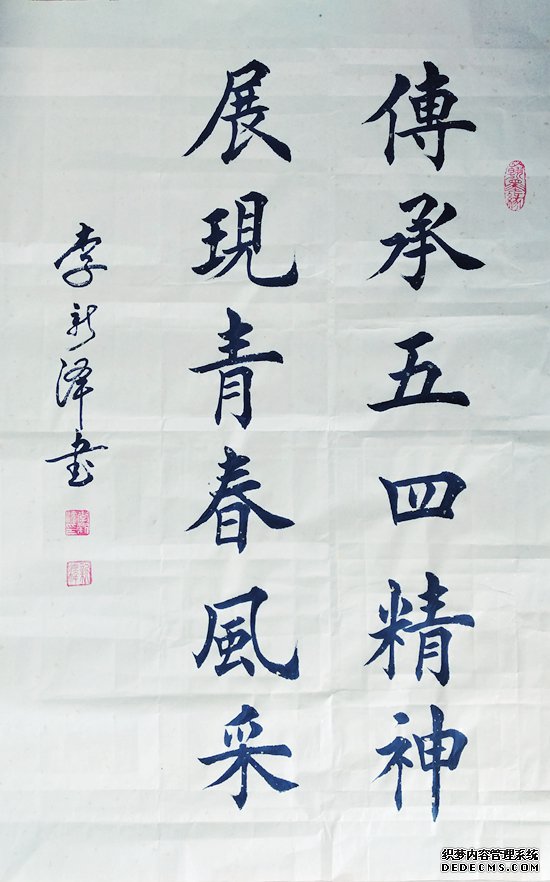 傳承五四精神
展現青春風采
李新澤書
织梦内容管理系统
DEDECMS.COM